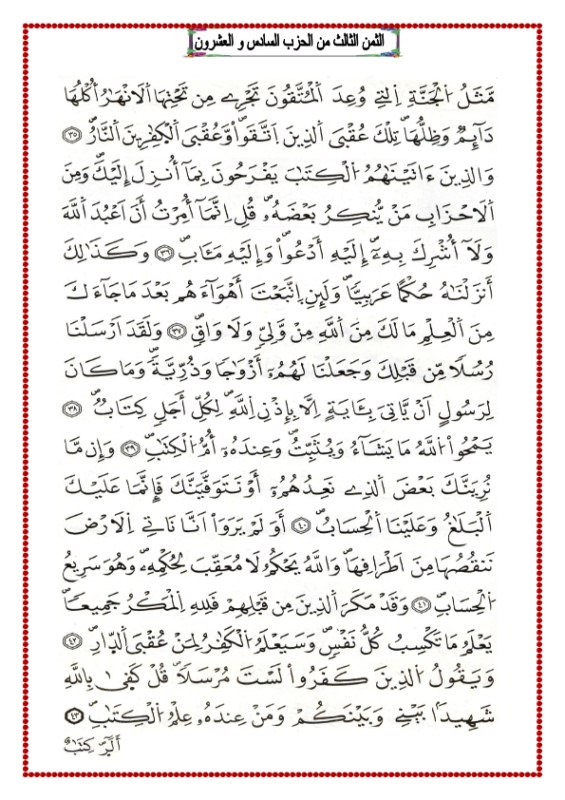 الثمن الثالث من الحزب السادس و العشرون
مَّثَلُ اُ۬لْجَنَّةِ اِ۬لتِے وُعِدَ اَ۬لْمُتَّقُونَ تَجْرِے مِن تَحْتِهَا اَ۬لَانْهَٰرُ أُكْلُهَا
دَآئِمٞ وَظِلُّهَاۖ تِلْكَ عُقْبَي اَ۬لذِينَ اَ۪تَّقَواْۖ وَّعُقْبَي اَ۬لْكٰ۪فِرِينَ اَ۬لنَّارُۖ ٣٥
وَالذِينَ ءَاتَيْنَٰهُمُ اُ۬لْكِتَٰبَ يَفْرَحُونَ بِمَآ أُنزِلَ إِلَيْكَۖ وَمِنَ
اَ۬لَاحْزَابِ مَنْ يُّنكِرُ بَعْضَهُۥۖ قُلِ اِنَّمَآ أُمِرْتُ أَنَ اَعْبُدَ اَ۬للَّهَ
وَلَآ أُشْرِكَ بِهِۦٓۖ إِلَيْهِ أَدْعُواْ وَإِلَيْهِ مَـَٔابِۖ ٣٦ وَكَذَٰلِكَ
أَنزَلْنَٰهُ حُكْماً عَرَبِيّاٗۖ وَلَئِنِ اِ۪تَّبَعْتَ أَهْوَآءَهُم بَعْدَ مَا جَآءَكَ
مِنَ اَ۬لْعِلْمِ مَا لَكَ مِنَ اَ۬للَّهِ مِنْ وَّلِيّٖ وَلَا وَاقٖۖ ٣٧ وَلَقَدَ اَرْسَلْنَا
رُسُلاٗ مِّن قَبْلِكَ وَجَعَلْنَا لَهُمُۥٓ أَزْوَٰجاٗ وَذُرِّيَّةٗۖ وَمَا كَانَ
لِرَسُولٍ اَنْ يَّاتِيَ بِـَٔايَةٍ اِلَّا بِإِذْنِ اِ۬للَّهِۖ لِكُلِّ أَجَلٖ كِتَابٞۖ ٣٨
يَمْحُواْ اُ۬للَّهُ مَا يَشَآءُ وَيُثَبِّتُۖ وَعِندَهُۥٓ أُمُّ اُ۬لْكِتَٰبِۖ ٣٩ وَإِن مَّا
نُرِيَنَّكَ بَعْضَ اَ۬لذِے نَعِدُهُمُۥٓ أَوْ نَتَوَفَّيَنَّكَ فَإِنَّمَا عَلَيْكَ
اَ۬لْبَلَٰغُ وَعَلَيْنَا اَ۬لْحِسَابُۖ ٤٠ أَوَلَمْ يَرَوَاْ اَنَّا نَاتِے اِ۬لَارْضَ
نَنقُصُهَا مِنَ اَطْرَافِهَاۖ وَاللَّهُ يَحْكُمُ لَا مُعَقِّبَ لِحُكْمِهِۦۖ وَهُوَ سَرِيعُ
اُ۬لْحِسَابِۖ ٤١ وَقَدْ مَكَرَ اَ۬لذِينَ مِن قَبْلِهِمْ فَلِلهِ اِ۬لْمَكْرُ جَمِيعاٗۖ
يَعْلَمُ مَا تَكْسِبُ كُلُّ نَفْسٖۖ وَسَيَعْلَمُ اُ۬لْكَٰفِرُ لِمَنْ عُقْبَي اَ۬لدّ۪ارِۖ ٤٢
وَيَقُولُ اُ۬لذِينَ كَفَرُواْ لَسْتَ مُرْسَلاٗۖ قُلْ كَف۪يٰ بِاللَّهِ
شَهِيداَۢ بَيْنِے وَبَيْنَكُمْ وَمَنْ عِندَهُۥ عِلْمُ اُ۬لْكِتَٰبِۖ ٤٣
أَلَٓر۪ كِتَٰبٌ